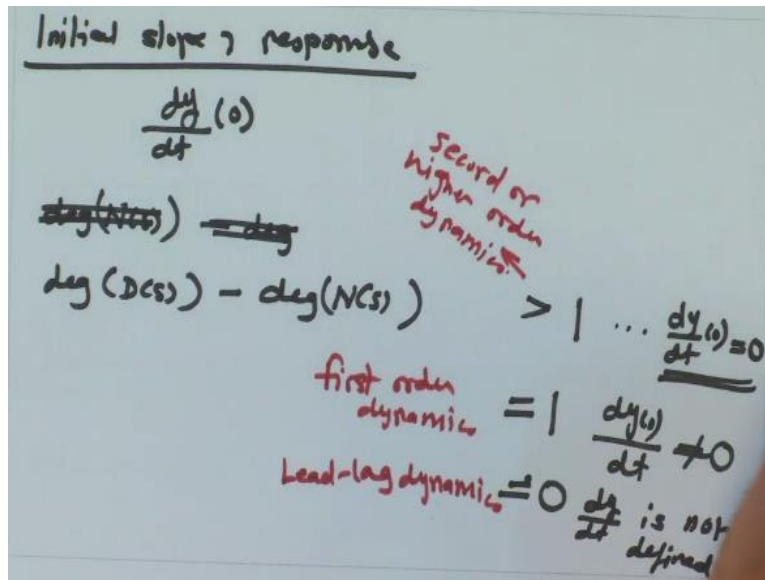 Initial slope, response
dy/dt (0)
deg(N(s)) - deg
second or
higher order
dynamics.
deg(D(s)) - deg(N(s)) > 1 ... dy/dt(0)=0
first order
dynamics = 1 dy(0)/dt ≠ 0
Lead-lag dynamics = 0 dy/dt is not
defined